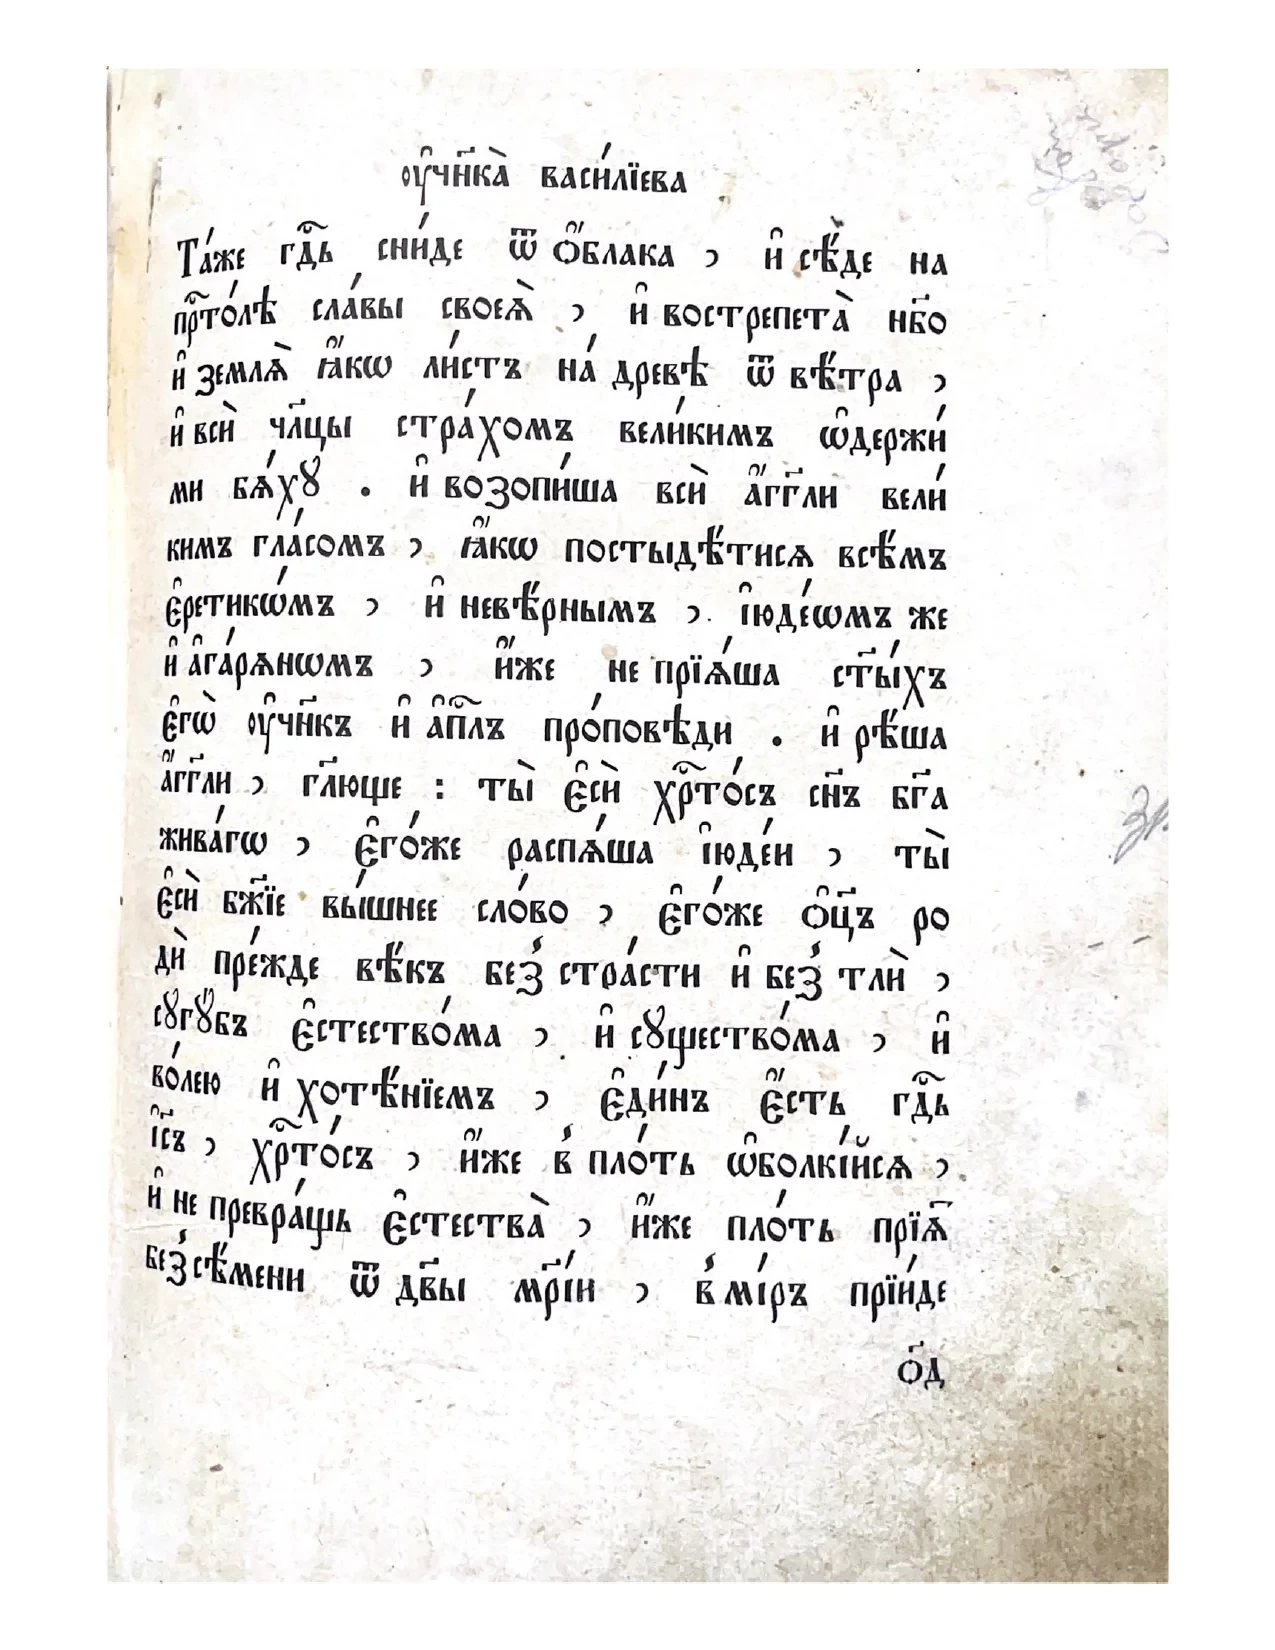 оу҆чн҃ка̀ васи́лїева
Та́же гд҇ь сни́де ѿ о҆́блака , и҆ сѣ́де на
пр҇то́лѣ сла́вы своея̀ , и҆ вострепета̀ нб҃о
и҆ земля̀ ꙗ҆́кѡ ли́стъ на́ древѣ ѿ вѣ́тра ,
и҆ всѝ чл҃цы стра́хомъ вели́кимъ ѡ҆держи́
ми бѧ́хꙋ . и҆ возопи́ша всѝ а҆́гг҃ли вели́
кимъ гла́сомъ , ꙗ҆́кѡ постыдѣ́тисѧ всѣ́мъ
є҆ретикѡ́мъ , и҆ невѣ́рнымъ , і҆юде́ѡмъ же
и҆ а҆га́рѧнѡмъ , и҆́же не прїѧ́ша ст҃ы́хъ
є҆гѡ̀ оу҆чн҃къ и҆ а҆п҇лъ про́повѣди . и҆ рѣ́ша
а҆́гг҃ли , гл҃юще : ты̀ є҆сѝ хр҇то́съ сн҃ъ бг҃а
жива́гѡ , є҆го́же распѧ́ша і҆юде́и , ты̀
є҆сѝ бж҃їе вы́шнее сло́во , є҆го́же ѻ҆ц҃ъ ро
дѝ пре́жде вѣ́къ без̾ стра́сти и҆ без̾ тлѝ ,
сꙋгꙋ́бъ є҆стество́ма , и҆ сꙋщество́ма , и҆
во́лею и҆ хотѣ́нїемъ , є҆ди́нъ є҆́сть гд҇ь
і҆с҃ъ , хр҇то́съ , и҆́же в̾ пло́ть ѡ҆болкі́йсѧ ,
и҆ не превра́щь є҆стества̀ , и҆́же пло́ть прїѧ҃
без̾ сѣ́мени ѿ дв҃ы мр҃і́и , в̾ мі́ръ прїи́де
о҃д